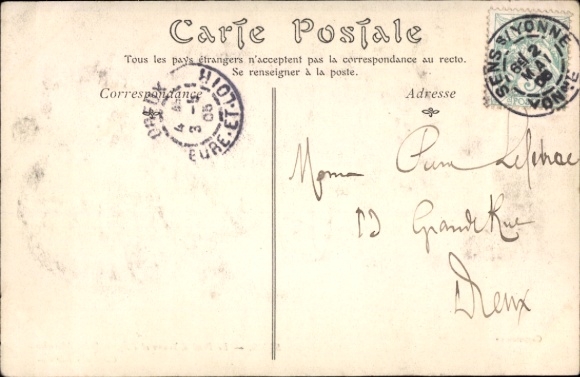 Carte Postale
Tous les pays étrangers n'acceptent pas la correspondance au recto.
Se renseigner à la poste.
Correspondance
Adresse
SENS S/YONNE
2
MAI
YONNE
DREUX
4
3 -5
05
EURE-ET-LOIR
Grande Rue
Dreux